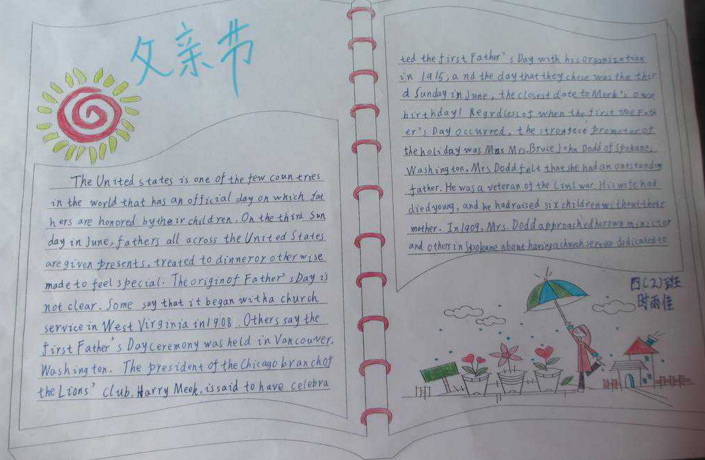 父亲节
The United states is one of the few countries
in the world that has an official day on which fat
hers are honored by their children. On the third Sun
day in June, fathers all across the United States
are given presents, treated to dinner or otherwise
made to feel special. The origin of Father's Day is
not clear. Some say that it began with a church
service in West Virginia in 1908. Others say the
first Father's Day ceremony was held in Vancouver,
Washington. The president of the Chicago branch of
the Lions' club, Harry Meek, is said to have celebra
ted the first Father's Day with his organization
in 1915, and the day that they chose was the thir
d Sunday in June, the closest date to Meek's own
birthday! Regrdless of when the first Fath
er's Day occurred, the strongest promoter of
the holiday was Mrs. Bruce John Dodd of Spokane,
Washington. Mrs Dodd felt that she had an outstanding
father. He was a veteran of the Civil war. His wife had
died young, and he had raised six children without their
mother. In 1909, Mrs. Dodd approached her own minister
and others in Spokane about having a church service dedicated to
四(2)班
时雨佳